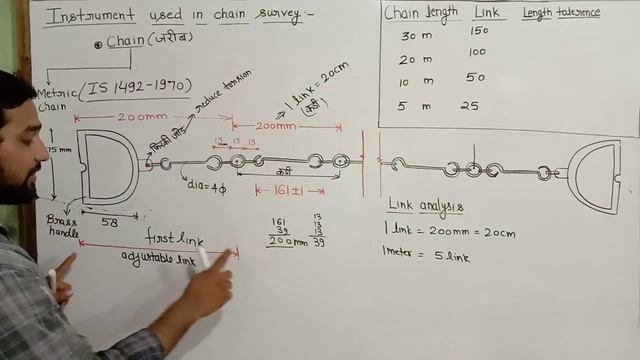 Instrument used in chain survey:-
* Chain (जरीब)
Metric chain
(IS 1492-1970)
reduce torsion
1 link = 20cm
(कड़ी)
200mm
200mm
13 13 13
75 mm
कड़ी
dia = 4ϕ
161±1
Brass handle
58
first link
adjustable link
161
39
200mm
13
13
13
39
Chain length Link Length tolerence
30 m 150
20 m 100
10 m 50
5 m 25
Link analysis
1 link = 200mm = 20cm
1meter = 5 link